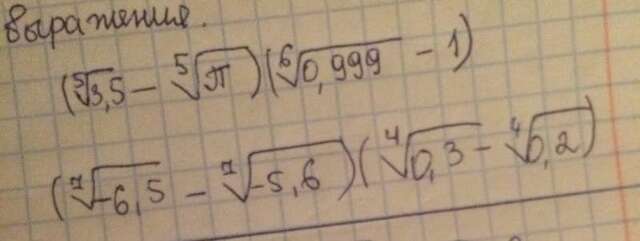 выражения.
(⁵√3,5 − ⁵√π)(⁶√0,999 − 1)
(⁷√−6,5 − ⁷√−5,6)(⁴√0,3 − ⁴√0,2)